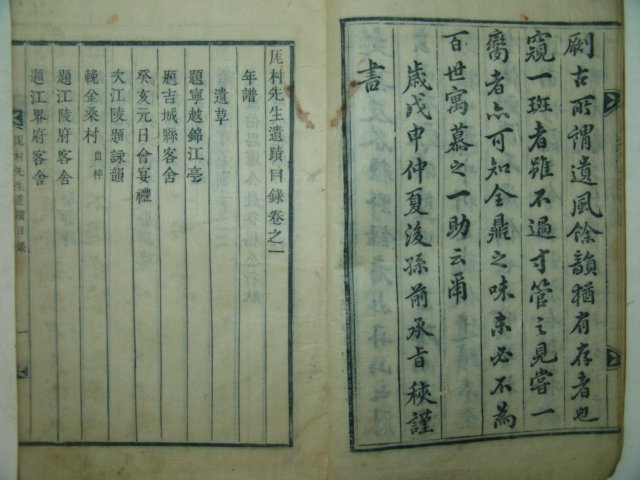 劂古所謂遺風餘韻猶有存者也
窺一斑者雖不過寸管之見嘗一
臠者亦可知全鼎之味未必不為
百世寓慕之一助云爾
歲戊申仲夏後孫前承旨 謹
書
先生遺蹟目錄卷之一
年譜
遺草
題寧越錦江亭
題吉城縣客舍
癸亥元日會宴禮
次江陵題詠韻
輓金桑村 自粹
題江陵府客舍
題江界府客舍
先生遺蹟目錄
一